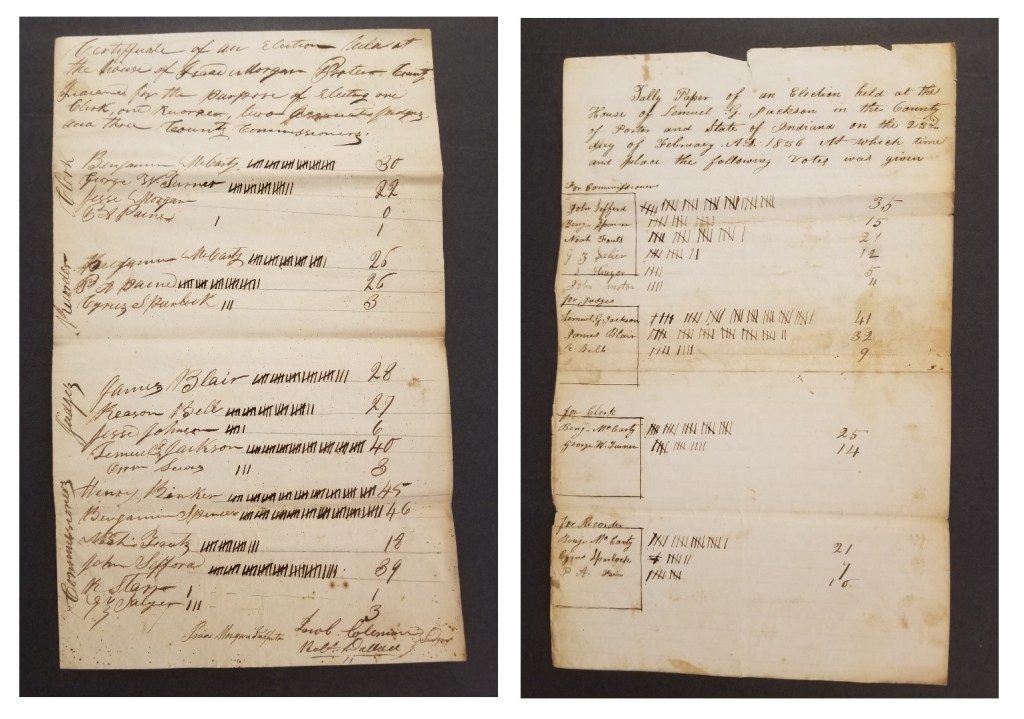 Certificate of an Election held at
the house of Isaac Morgan Porter County
Indiana for the purpose of Electing one
Clerk, one Recorder, two Associate Judges
and three County Commissioners.
Clerk
Benjamin McCarty 30
George W Turner 22
Jesse Morgan 0
P A Paine 1
Recorder
Benjamin McCarty 26
P A Paine 26
Cyrus Spurlock 3
Judges
James Blair 28
Reason Bell 27
Jesse Johnson 6
Lemuel G Jackson 40
Lewis 3
Commissioners
Henry Rinker 45
Benjamin Spencer 46
18
John Sefford 39
Starr 1
Salyer 3
Isaac Morgan
Jacob Coleman
Robt Wallace Judges
Tally Paper of an Election held at the
House of Lemuel G. Jackson in the County
of Porter and State of Indiana on the 23rd
day of February A.D. 1836 At which time
and place the following Votes was given
For Commissioners
John Sefford 35
Benj. Spencer 15
Noah Fouts 21
12
5
John 4
for Judges
Lemuel G Jackson 41
James Blair 32
R Bell 9
for Clerk
Benj. McCarty 25
George W. Turner 14
for Recorder
Benj. McCarty 21
Cyrus Spurlock
P A Pain 10